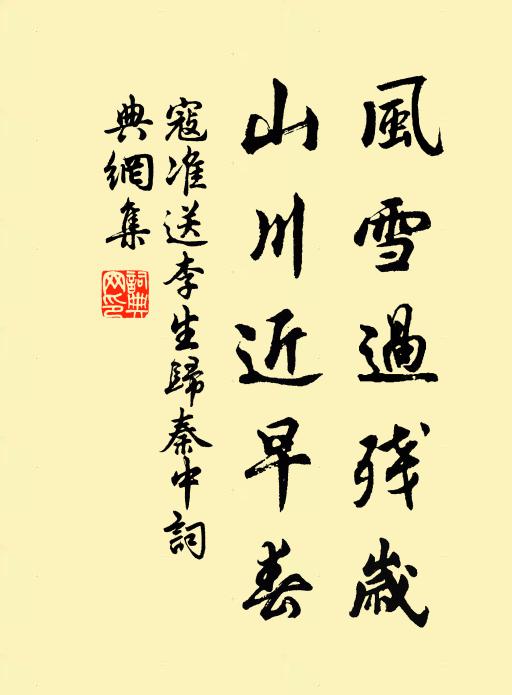 風雪過殘歲
山川近早春
寇准送李生歸秦中詞
典網集
詞典
网印